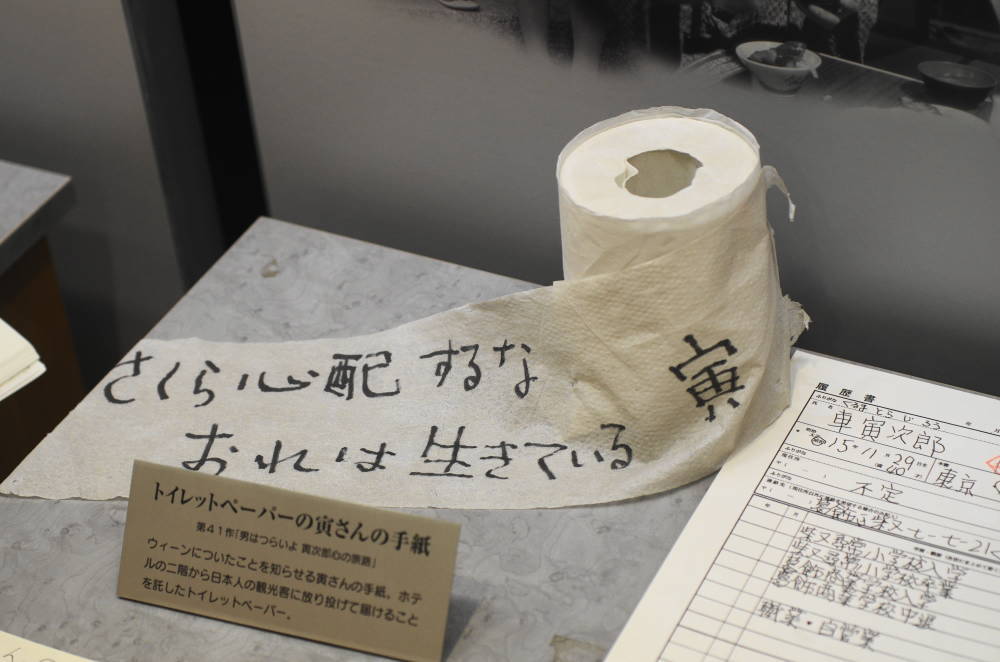 さくら心配するな
おれは生きている
寅
トイレットペーパーの寅さんの手紙
第41作「男はつらいよ 寅次郎心の旅路」
ウィーンについたことを知らせる寅さんの手紙。ホテ
ルの二階から日本人の観光客に放り投げて届けること
を託したトイレットペーパー。
履歴書
ふりがな くるま とら じ ろう
氏名 車寅次郎
15年11月29日生
東京
不定
葛飾 柴又 七-七-21-
柴又尋常小学校入学
柴又尋常小学校卒業
葛飾商業学校入学
葛飾商業学校中退
職業・自営業